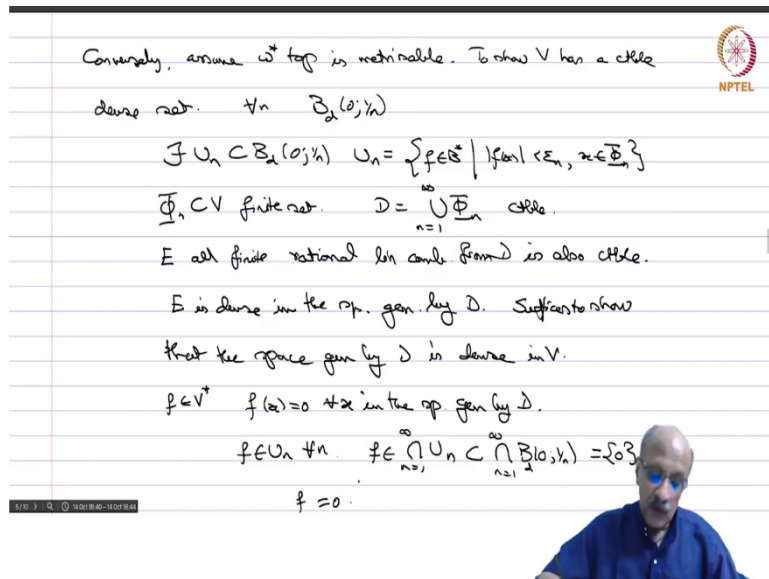 Conversely, assume w* top is metrisable. To show V has a ctble
NPTEL
dense set. ∀n B_d(0;1/n)
∃ U_n ⊂ B_d(0;1/n) U_n = {f∈B* | |f(x)| < ε_n, x∈Φ_n}
Φ_n ⊂ V finite set. D = ∪_{n=1}^∞ Φ_n ctble.
E all finite rational lin comb. from D is also ctble.
E is dense in the sp. gen. by D. Suffices to show
that the space gen by D is dense in V.
f∈V* f(x)=0 ∀x in the sp. gen by D.
f∈U_n ∀n. f∈ ∩_{n=1}^∞ U_n ⊂ ∩_{n=1}^∞ B_d(0;1/n) = {0}
f=0.
5/10 14 Oct 18:40-14 Oct 18:44